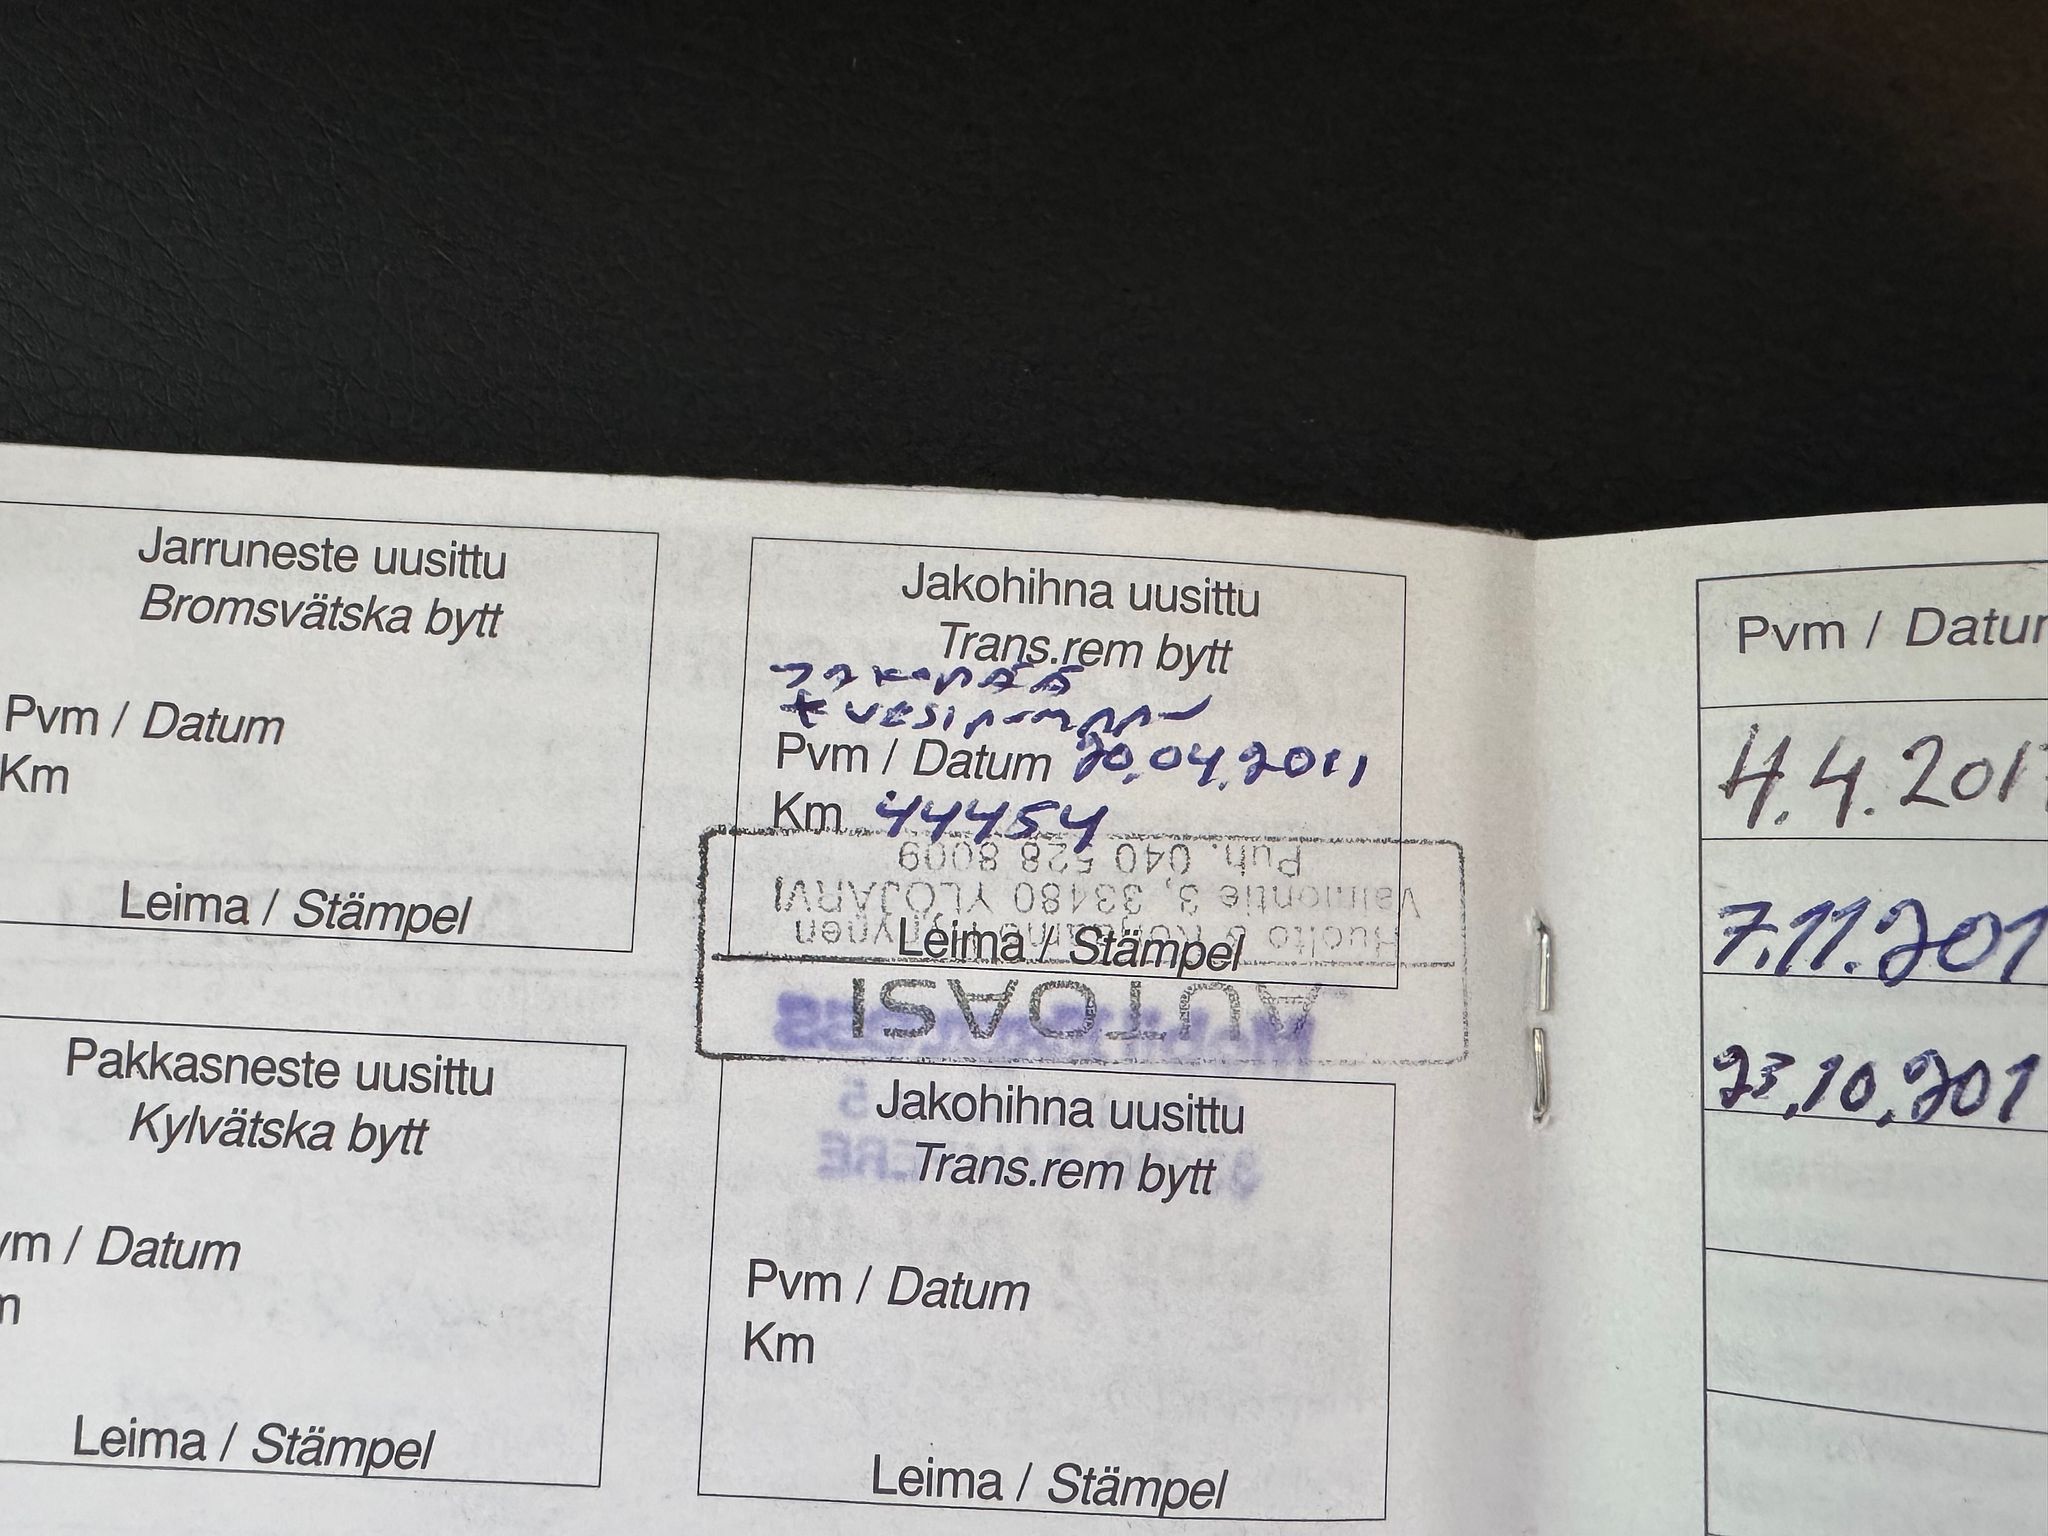 Jarruneste uusittu
Bromsvätska bytt
Pvm / Datum
Km
Leima / Stämpel
Jakohihna uusittu
Trans.rem bytt
JAKOPÄÄ
+ VESIPUMPPU
Pvm / Datum 20.04.2011
Km 44454
Leima / Stämpel
AUTOASI
Huolto &
Valmontie 3, 33480 YLÖJÄRVI
Puh. 040 528 8009
Pakkasneste uusittu
Kylvätska bytt
vm / Datum
m
Leima / Stämpel
Jakohihna uusittu
Trans.rem bytt
Pvm / Datum
Km
Leima / Stämpel
Pvm / Datum
4.4.201
7.11.201
23.10.201